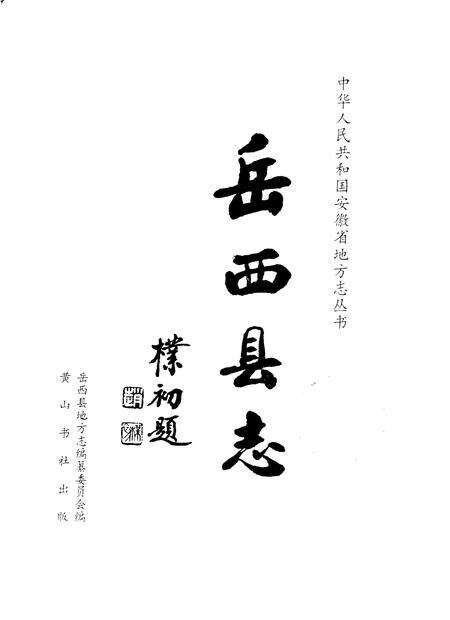 中华人民共和国安徽省地方志丛书
岳西县志
樸初题
岳西县地方志编纂委员会编
黄山书社出版